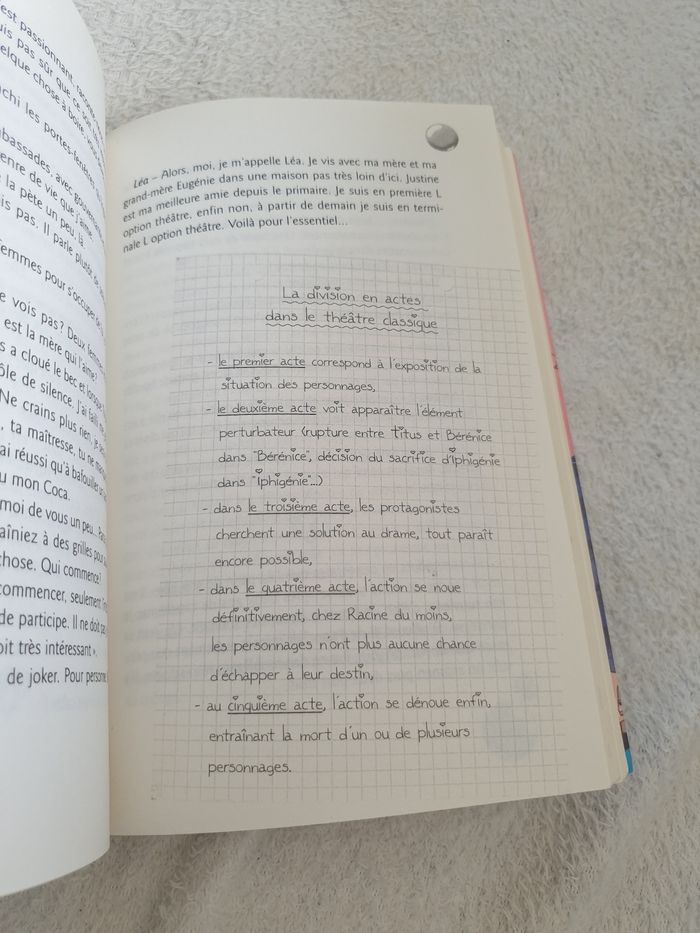 est passionnant, raconte
suis pas sûr que ce soit
quelque chose à boire, vous
chi les portes-fenêtres
bassades, avec gouvernantes
enre de vie que j'aime
la pète un peu, là.
is pas. Il parle plutôt de
emmes pour s'occuper de
e vois pas? Deux femmes
est la mère qui l'aime?
s a cloué le bec et lorsque
ôle de silence. J'ai failli
Ne crains plus rien, je
, ta maîtresse, tu ne
ai réussi qu'à bafouiller
u mon Coca.
moi de vous un peu...
aîniez à des grilles pour
chose. Qui commence?
commencer, seulement
de participe. Il ne doit pas
oit très intéressant ».
de joker. Pour personne
Léa – Alors, moi, je m'appelle Léa. Je vis avec ma mère et ma
grand-mère Eugénie dans une maison pas très loin d'ici. Justine
est ma meilleure amie depuis le primaire. Je suis en première L
option théâtre, enfin non, à partir de demain je suis en termi-
nale L option théâtre. Voilà pour l'essentiel...
La division en actes
dans le théâtre classique
- le premier acte correspond à l'exposition de la
situation des personnages,
- le deuxième acte voit apparaître l'élément
perturbateur (rupture entre Titus et Bérénice
dans "Bérénice", décision du sacrifice d'Iphigénie
dans "Iphigénie"...)
- dans le troisième acte, les protagonistes
cherchent une solution au drame, tout paraît
encore possible,
- dans le quatrième acte, l'action se noue
définitivement, chez Racine du moins,
les personnages n'ont plus aucune chance
d'échapper à leur destin,
- au cinquième acte, l'action se dénoue enfin,
entraînant la mort d'un ou de plusieurs
personnages.